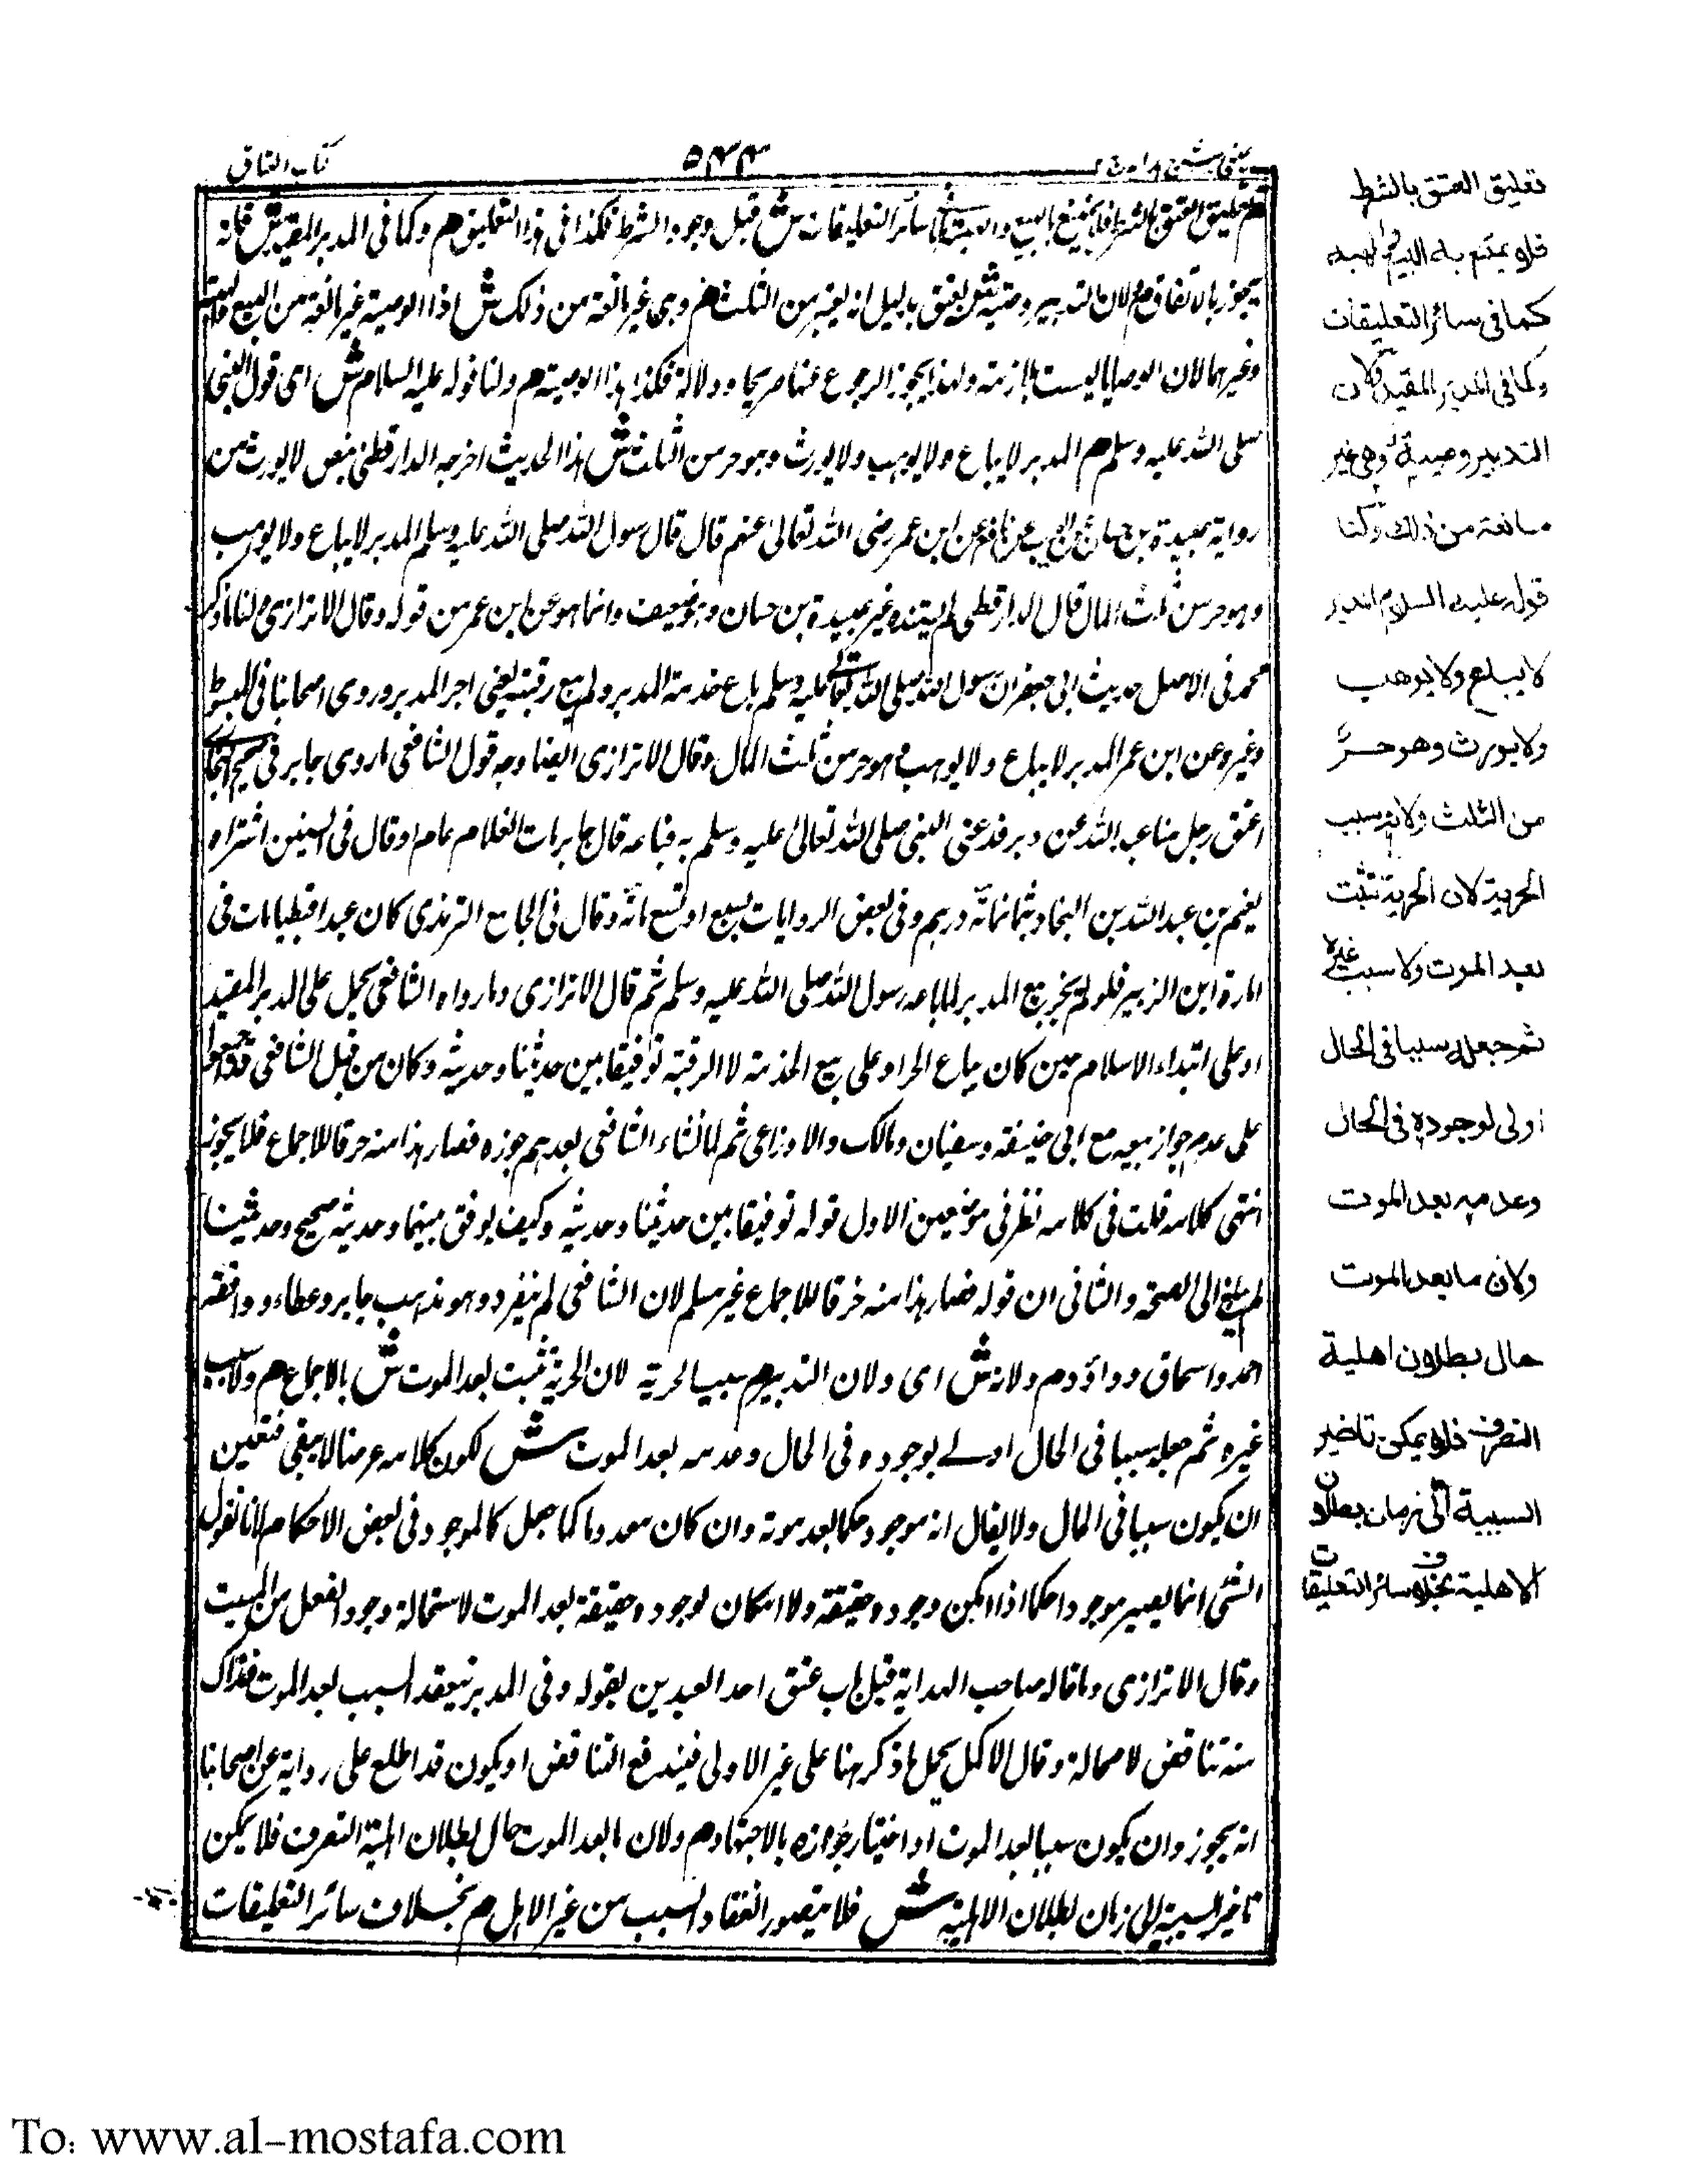 كتاب العتاق
۵۴۴
عينى شرح هداية ج ٢
م تعليق العتق بالشرط فلا يمتنع به البيع والهبة كما فى سائر التعليقات ش قبل وجود الشرط فكذا فى هذا التعليق م وكما فى المدبر المقيد ش فانه
يجوز بالاتفاق م ولان التدبير وصية ش بعتق بدليل انه يعتبر من الثلث م وهى غير مانعة من ذلك ش اذا الوصية غير مانعة من البيع والهبة
وغيرهما لان الوصايا ليست بلازمة ولهذا يجوز الرجوع عنها صريحا ودلالة فكذا هذا الوصية م ولنا قوله عليه السلام ش اى قول النبى
صلى الله عليه وسلم م المدبر لا يباع ولا يوهب ولا يورث وهو حر من الثلث ش هذا الحديث اخرجه الدارقطنى بنقص لا يورث من
رواية عبيدة بن حسان عن ايوب عن نافع عن ابن عمر رضى الله تعالى عنهم قال قال رسول الله صلى الله عليه وسلم المدبر لا يباع ولا يوهب
وهو حر من ثلث المال قال الدارقطنى لم يسنده غير عبيدة بن حسان وهو ضعيف وانما هو عن ابن عمر من قوله وقال الاترازى ولنا ما ذكر
محمد فى الاصل حديث ابى جعفر ان رسول الله صلى الله تعالى عليه وسلم باع خدمة المدبر ولم يبع رقبته يعنى اجر المدبر وروى اصحابنا فى المبسوط
وغيره عن ابن عمر المدبر لا يباع ولا يوهب وهو حر من ثلث المال وقال الاترازى ايضا وجه قول الشافعى ما روى جابر فى صحيح البخارى
اعتق رجل منا عبدا له عن دبر فدعى النبى صلى الله تعالى عليه وسلم به فباعه قال جابر مات الغلام عام اول وقال فى السنين اشتراه
نعيم بن عبد الله بن النحام بثمانمائة درهم وفى بعض الروايات بسبع او تسع مائة وقال فى الجامع الترمذى كان عبدا قبطيا مات فى
امارة ابن الزبير فلو لم يجز بيع المدبر لما باعه رسول الله صلى الله عليه وسلم ثم قال الاترازى وما رواه الشافعى يحمل على المدبر المقيد
او على ابتداء الاسلام حين كان يباع الحر او على بيع الخدمة لا الرقبة توفيقا بين حديثنا وحديثه وكان من قبل الشافعى قد اجمعوا
على عدم جواز بيعه مع ابى حنيفة وسفيان ومالك والاوزاعى ثم لما نشاء الشافعى بعدهم جوزه فصار هذا منه خرقا للاجماع فلا يجوز
انتهى كلامه قلت فى كلامه نظر فى موضعين الاول قوله توفيقا بين حديثنا وحديثه وكيف يوفق بينهما وحديثه صحيح وحديثنا
لم يبلغ الى الصحة والثانى ان قوله فصار هذا منه خرقا للاجماع غير مسلم لان الشافعى لم ينفرد وهو مذهب جابر وعطاء ووافقه
احمد واسحاق وداؤد م ولانه ش اى ولان التدبير م سبب الحرية لان الحرية تثبت بعد الموت ش بالاجماع م ولا سبب
غيره ثم جعله سببا فى الحال اولے لوجوده فى الحال وعدمه بعد الموت ش لكون كلامه عرضا لا يبقى فتعين
ان يكون سببا فى الحال ولا يقال انه موجود حكما بعد موته وان كان معدوما كما جعل كالموجود فى بعض الاحكام لانا نقول
الشئ انما يصير موجودا حكما اذا امكن وجوده حقيقة ولا امكان لوجوده حقيقة بعد الموت لاستحالة وجود الفعل من الميت
وقال الاترازى وما قاله صاحب الهداية قبيل باب عتق احد العبدين بقوله وفى المدبر ينعقد السبب بعد الموت فذاك
منه تناقض لا محالة وقال الاكمل يحمل ما ذكر هنا على غير الاولى فيندفع التناقض او يكون قد اطلع على رواية عن اصحابنا
انه يجوز وان يكون سببا بعد الموت او اختار جوازه بالاجتهاد م ولان ما بعد الموت حال بطلان اهلية التصرف فلا يمكن
تاخير السببية الى زمان بطلان الاهلية ش فلا يتصور انعقاد السبب من غير الاهل م بخلاف سائر التعليقات
تعليق العتق بالشرط
فلا يمتنع به البيع والهبة
كما فى سائر التعليقات
وكما فى المدبر المقيد ولان
التدبير وصية وهى غير
مانعة من ذلك ولنا
قوله عليه السلام المدبر
لا يباع ولا يوهب
ولا يورث وهو حر
من الثلث ولانه سبب
الحرية لان الحرية تثبت
بعد الموت ولا سبب غيره
ثم جعله سببا فى الحال
اولى لوجوده فى الحال
وعدمه بعد الموت
ولان ما بعد الموت
حال بطلان اهلية
التصرف فلا يمكن تاخير
السببية الى زمان بطلان
الاهلية بخلاف سائر التعليقات
To: www.al-mostafa.com